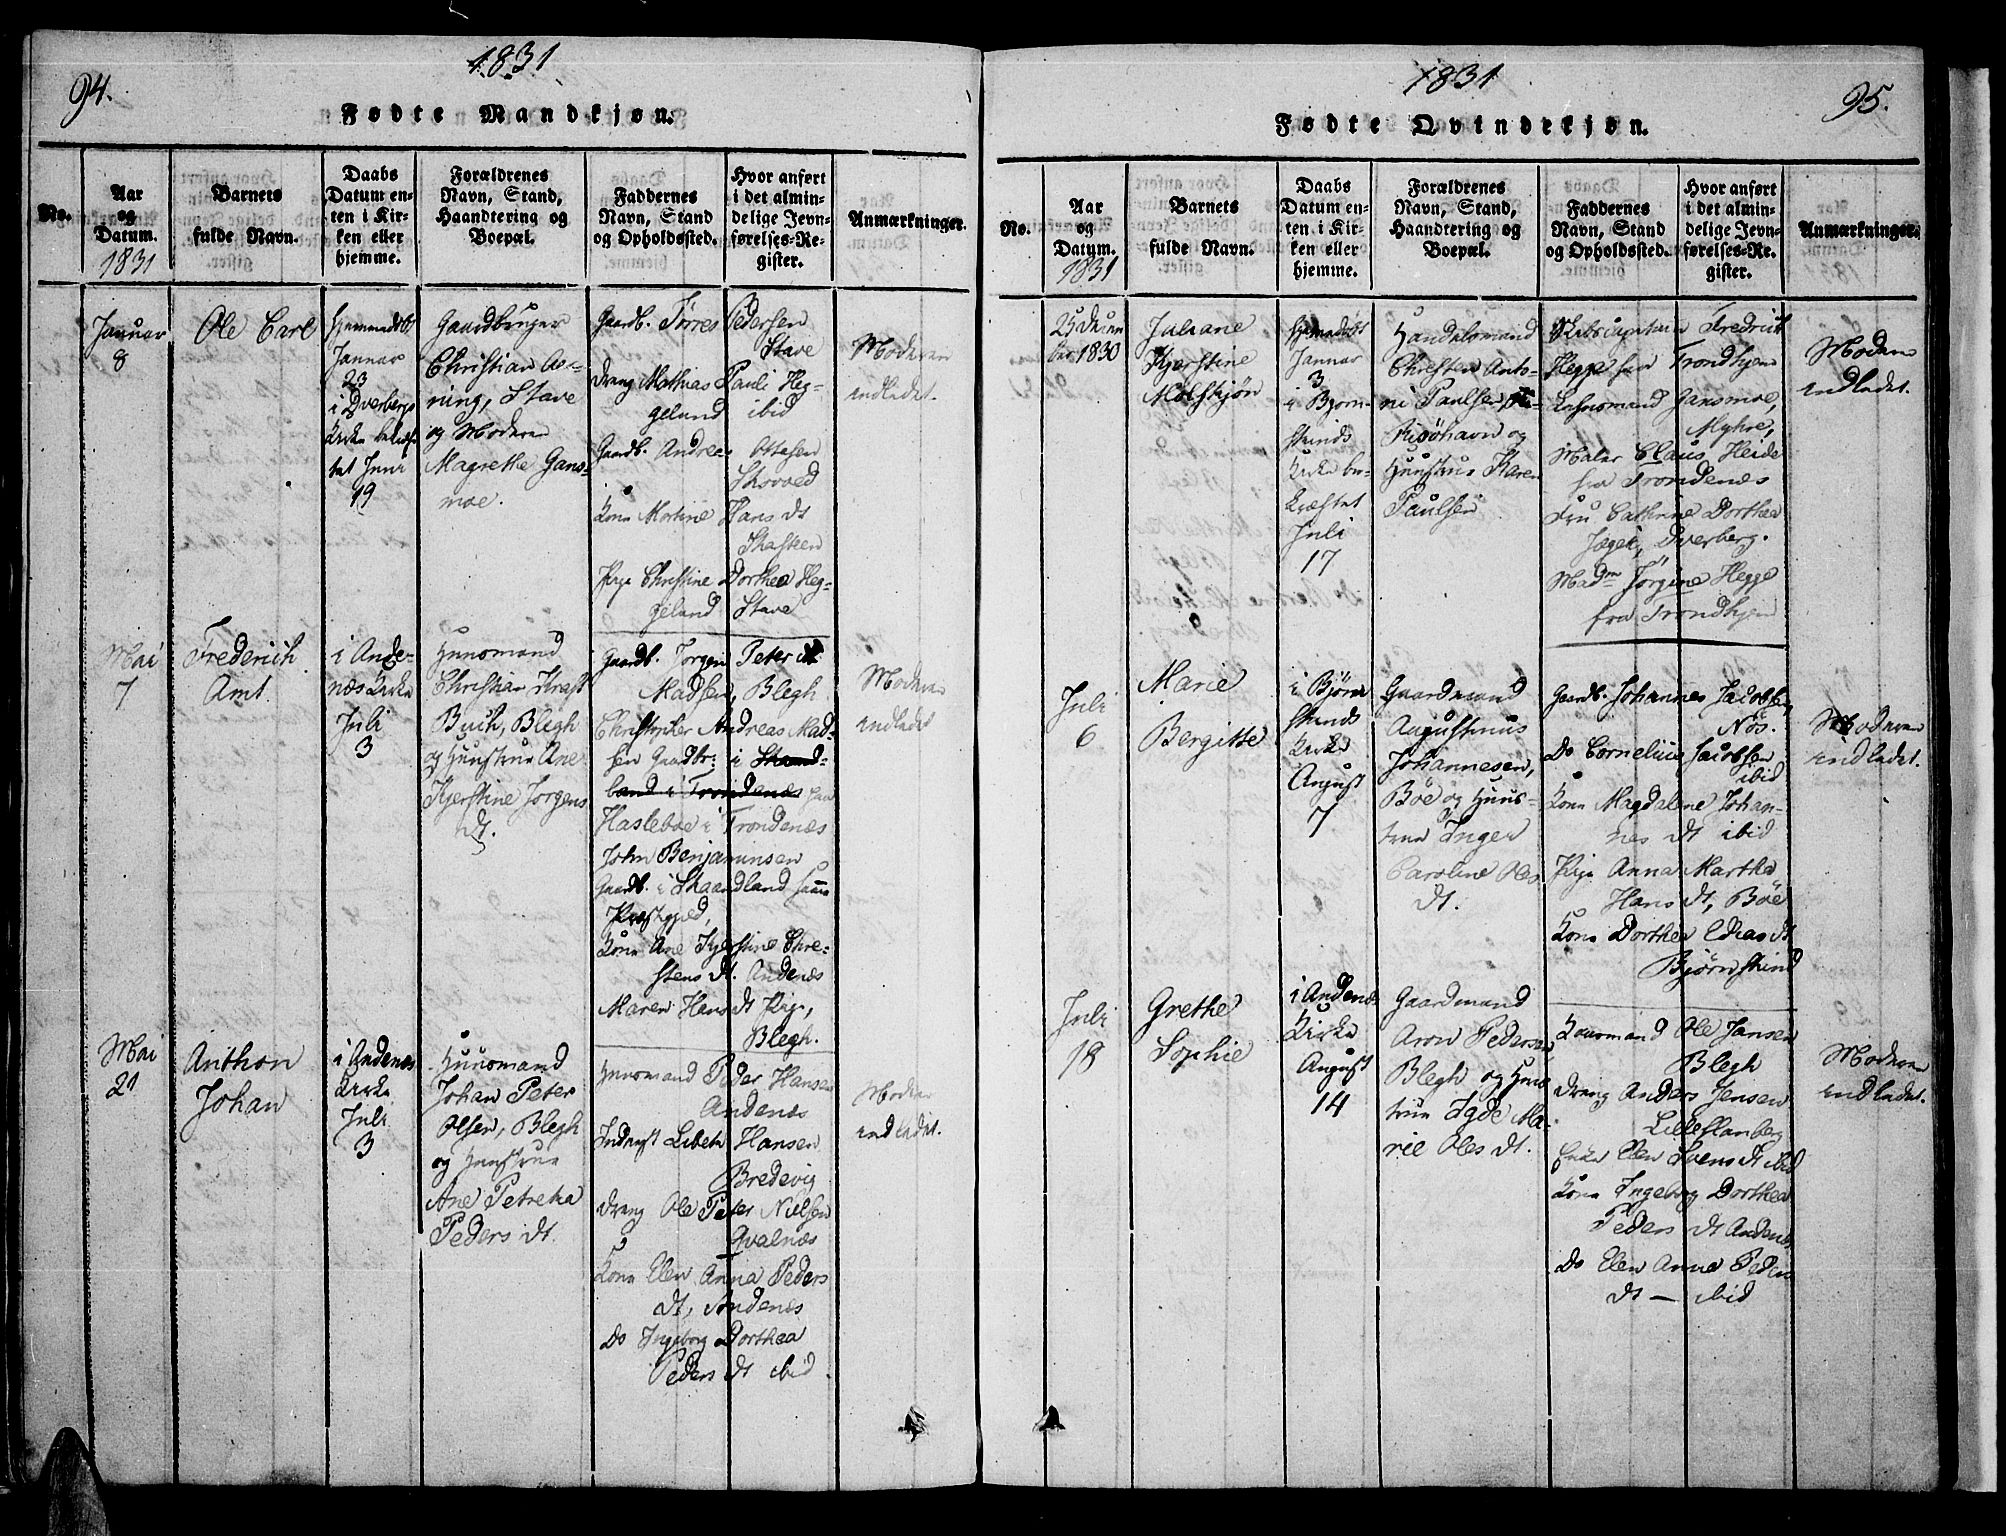 94.
1831
Fødte Mandkjøn.
No.
Aar
og
Datum.
1831
Barnets
fulde Navn.
Daabs
Datum en-
ten i Kir-
ken eller
hjemme.
Forældrenes
Navn, Stand,
Haandtering og
Boepæl.
Faddernes
Navn, Stand
og Opholdssted.
Hvor anført
i det almin-
delige Jevn-
førelses-Re-
gister.
Anmærkninger.
Januar
8
Ole Carl
Hjemmedøbt
Januar
23
i Dverbergs
Kirke bekræf-
tet Juni
19
Gaardbruger
Christian
ning, Stave
og Moderen
Magrethe Gans-
moe.
Gaardb. Tørres Pedersen
Stave
Dreng Mathias Pauli Heg-
geland ibid
Gaardb. Andreas Ottesen
Skoved
Kone Martine Hans dt
Skasteen
Pige Christine Dorthea Heg-
geland Stave
Moderen
indledet.
Mai
7
Frederich
Amt.
i Ande-
næs Kirke
Juli
3
Huusmand
Christian Krast
Buch, Blegh
og Huustrue Ane
Kjerstine Jørgens
dt.
Gaardb. Jørgen Peter
Madsen, Blegh
Christopher Andreas Mad-
sen Gaardbr. i Skaand-
land i Trondenæs
Hasleboe i Trondenæs
John Benjaminsen
Gaardb. i Skaandland samme
Præstegjæld,
Kone Ane Kjerstine Chre-
stens dt. Andenæs
Maren Hans dt Pige,
Blegh.
Moderen
indledet
Mai
21
Anthon
Johan
i Andenæs
Kirke
Juli
3
Huusmand
Johan Peter
Olsen, Blegh
og Huustrue
Ane Petreka
Peders dt.
Huusmand Peder Hansen
Andenæs
Inderst Hansen
Bredevig
Dreng Ole Peter Nielsen
Qvalnæs
Kone Elen Anna Peders
dt, Andenæs
Do Ingeborg Dorthea
Peders dt ibid.
Moderen
indledet.
1831
95.
Fødte Qvindekjøn.
No.
Aar
og
Datum.
1831
Barnets
fulde Navn.
Daabs
Datum en-
ten i Kir-
ken eller
hjemme.
Forældrenes
Navn, Stand,
Haandtering og
Boepæl.
Faddernes
Navn, Stand
og Opholdssted.
Hvor anført
i det almin-
delige Jevn-
førelses-Re-
gister.
Anmærkninger.
25 Decem
ber 1830
Juliane
Kjerstine
Mølskjön
Hjemmedøbt
Januar
3
i Bjørn-
skinds
Kirke be-
kræftet
Juli
17
Handelsmand
Christen Anto-
ni Paulsen
Risøhavn og
Huustrue Karen
Paulsen
Fredrich
Hegge fra Trondhjem
Lehnsmand Gansmoe,
Myhre,
Maler Claus Heide
fra Trondenæs
Fru Cathrine Dorthea
Jæger, Dverberg.
Madm Jörgine Hegge
fra Trondhjem
Moderen
indledet.
Juli
6
Marie
Bergitte
i Bjørn
skinds
Kirke
August
7
Gaardmand
Augustinus
Johannesen,
Böe og Huus-
true Inger
Caroline Oles
dt.
Gaardb. Johannes Jacobsen
Nös.
Do Cornelius Jacobsen
ibid
Kone Magdalene Johan-
nes dt ibid
Pige Anna Martha
Hans dt, Böe
Kone Dorthea Elias dt
Bjørnskind
Moderen
indledet.
Juli
18
Grethe
Sophie
i Andenæs
Kirke
August
14
Gaardmand
Aron Pedersen
Blegh og Huus
true Igde Ma-
rie Oles dt.
Ole Jansen
Blegh
Dreng Anders Jensen
Enke Elen Svens dt ibid
Kone Ingeborg Dorthea
Peders dt Andenæs
Do Elen Anna Peders
dt — ibid
Moderen
indledet.